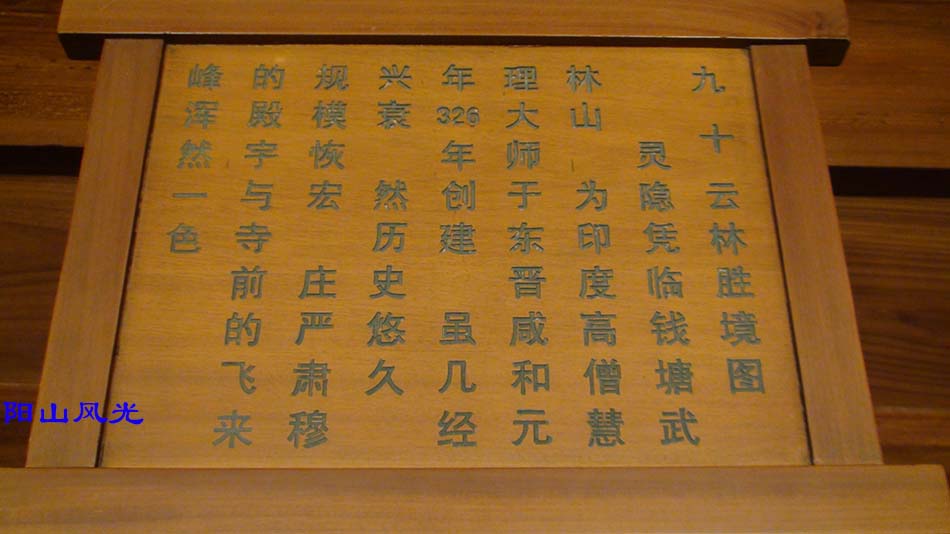 九十云林胜境图
灵隐凭临钱塘武
林山 为印度高僧慧
理大师于东晋咸和元
年326年创建 虽几经
兴衰 然历史悠久
规模恢宏 庄严肃穆
的殿宇与寺前的飞来
峰浑然一色
阳山风光